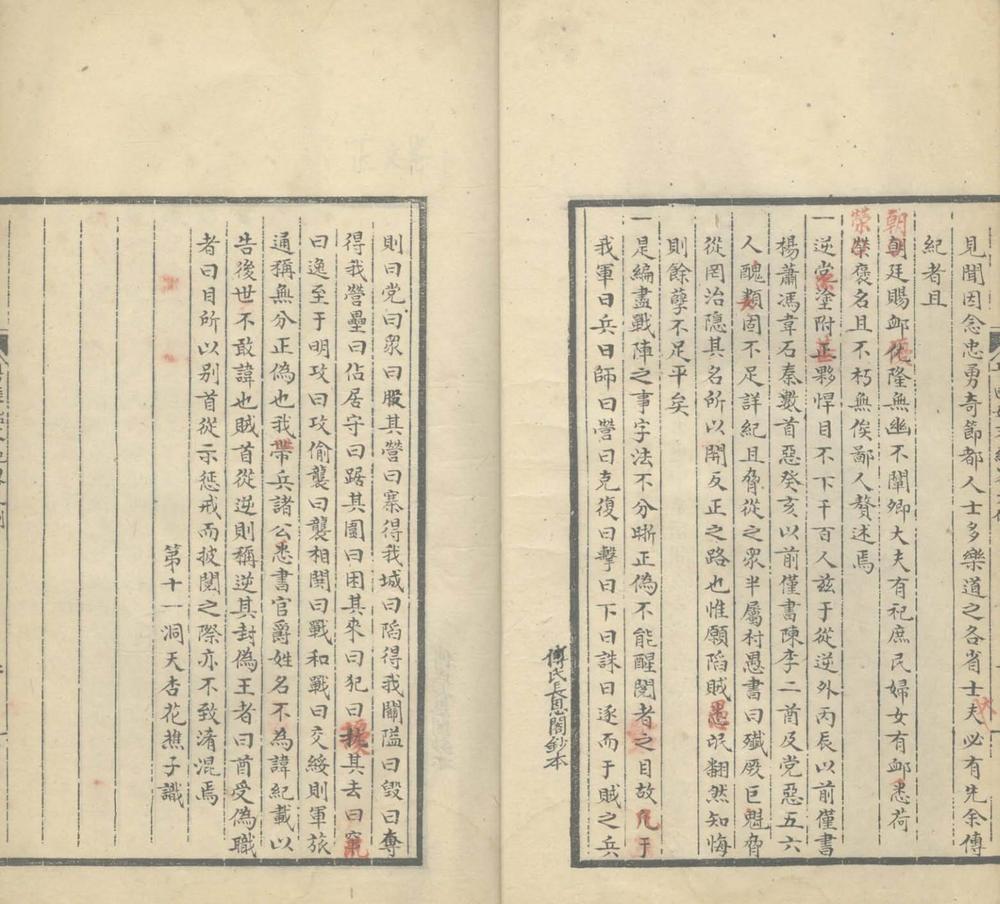 見聞因念忠勇奇節都人士多樂道之各省士夫必有先余傳
紀者且
朝廷賜卹優隆無幽不闡卿大夫有祀庶民婦女有卹悉荷
榮褒名且不朽無俟鄙人贅述焉
一逆黨塗附正夥悍目不下千百人茲于從逆外丙辰以前僅書
楊蕭馮韋石秦數首惡癸亥以前僅書陳李二酋及党惡五六
人醜類固不足詳紀且脅從之眾半屬村愚書曰殲厥巨魁脅
從罔治隱其名所以開反正之路也惟願陷賊愚氓翻然知悔
則餘孽不足平矣
一是編盡戰陣之事字法不分晰正偽不能醒閱者之目故凡于
我軍曰兵曰師曰營曰克復曰擊曰下曰誅曰逐而于賊之兵
傅氏長恩閣鈔本
則曰党曰眾曰股其營曰寨得我城曰陷得我關隘曰毀曰奪
得我營壘曰佔居守曰踞其圍曰困其來曰犯曰擾其去曰竄
曰逸至于明攻曰攻偷襲曰襲相閧曰戰和戰曰交綏則軍旅
通稱無分正偽也我帶兵諸公悉書官爵姓名不為諱紀載以
告後世不敢諱也賊首從逆則稱逆其封偽王者曰酋受偽職
者曰目所以别首從示懲戒而披閱之際亦不致淆混焉
第十一洞天杏花樵子識